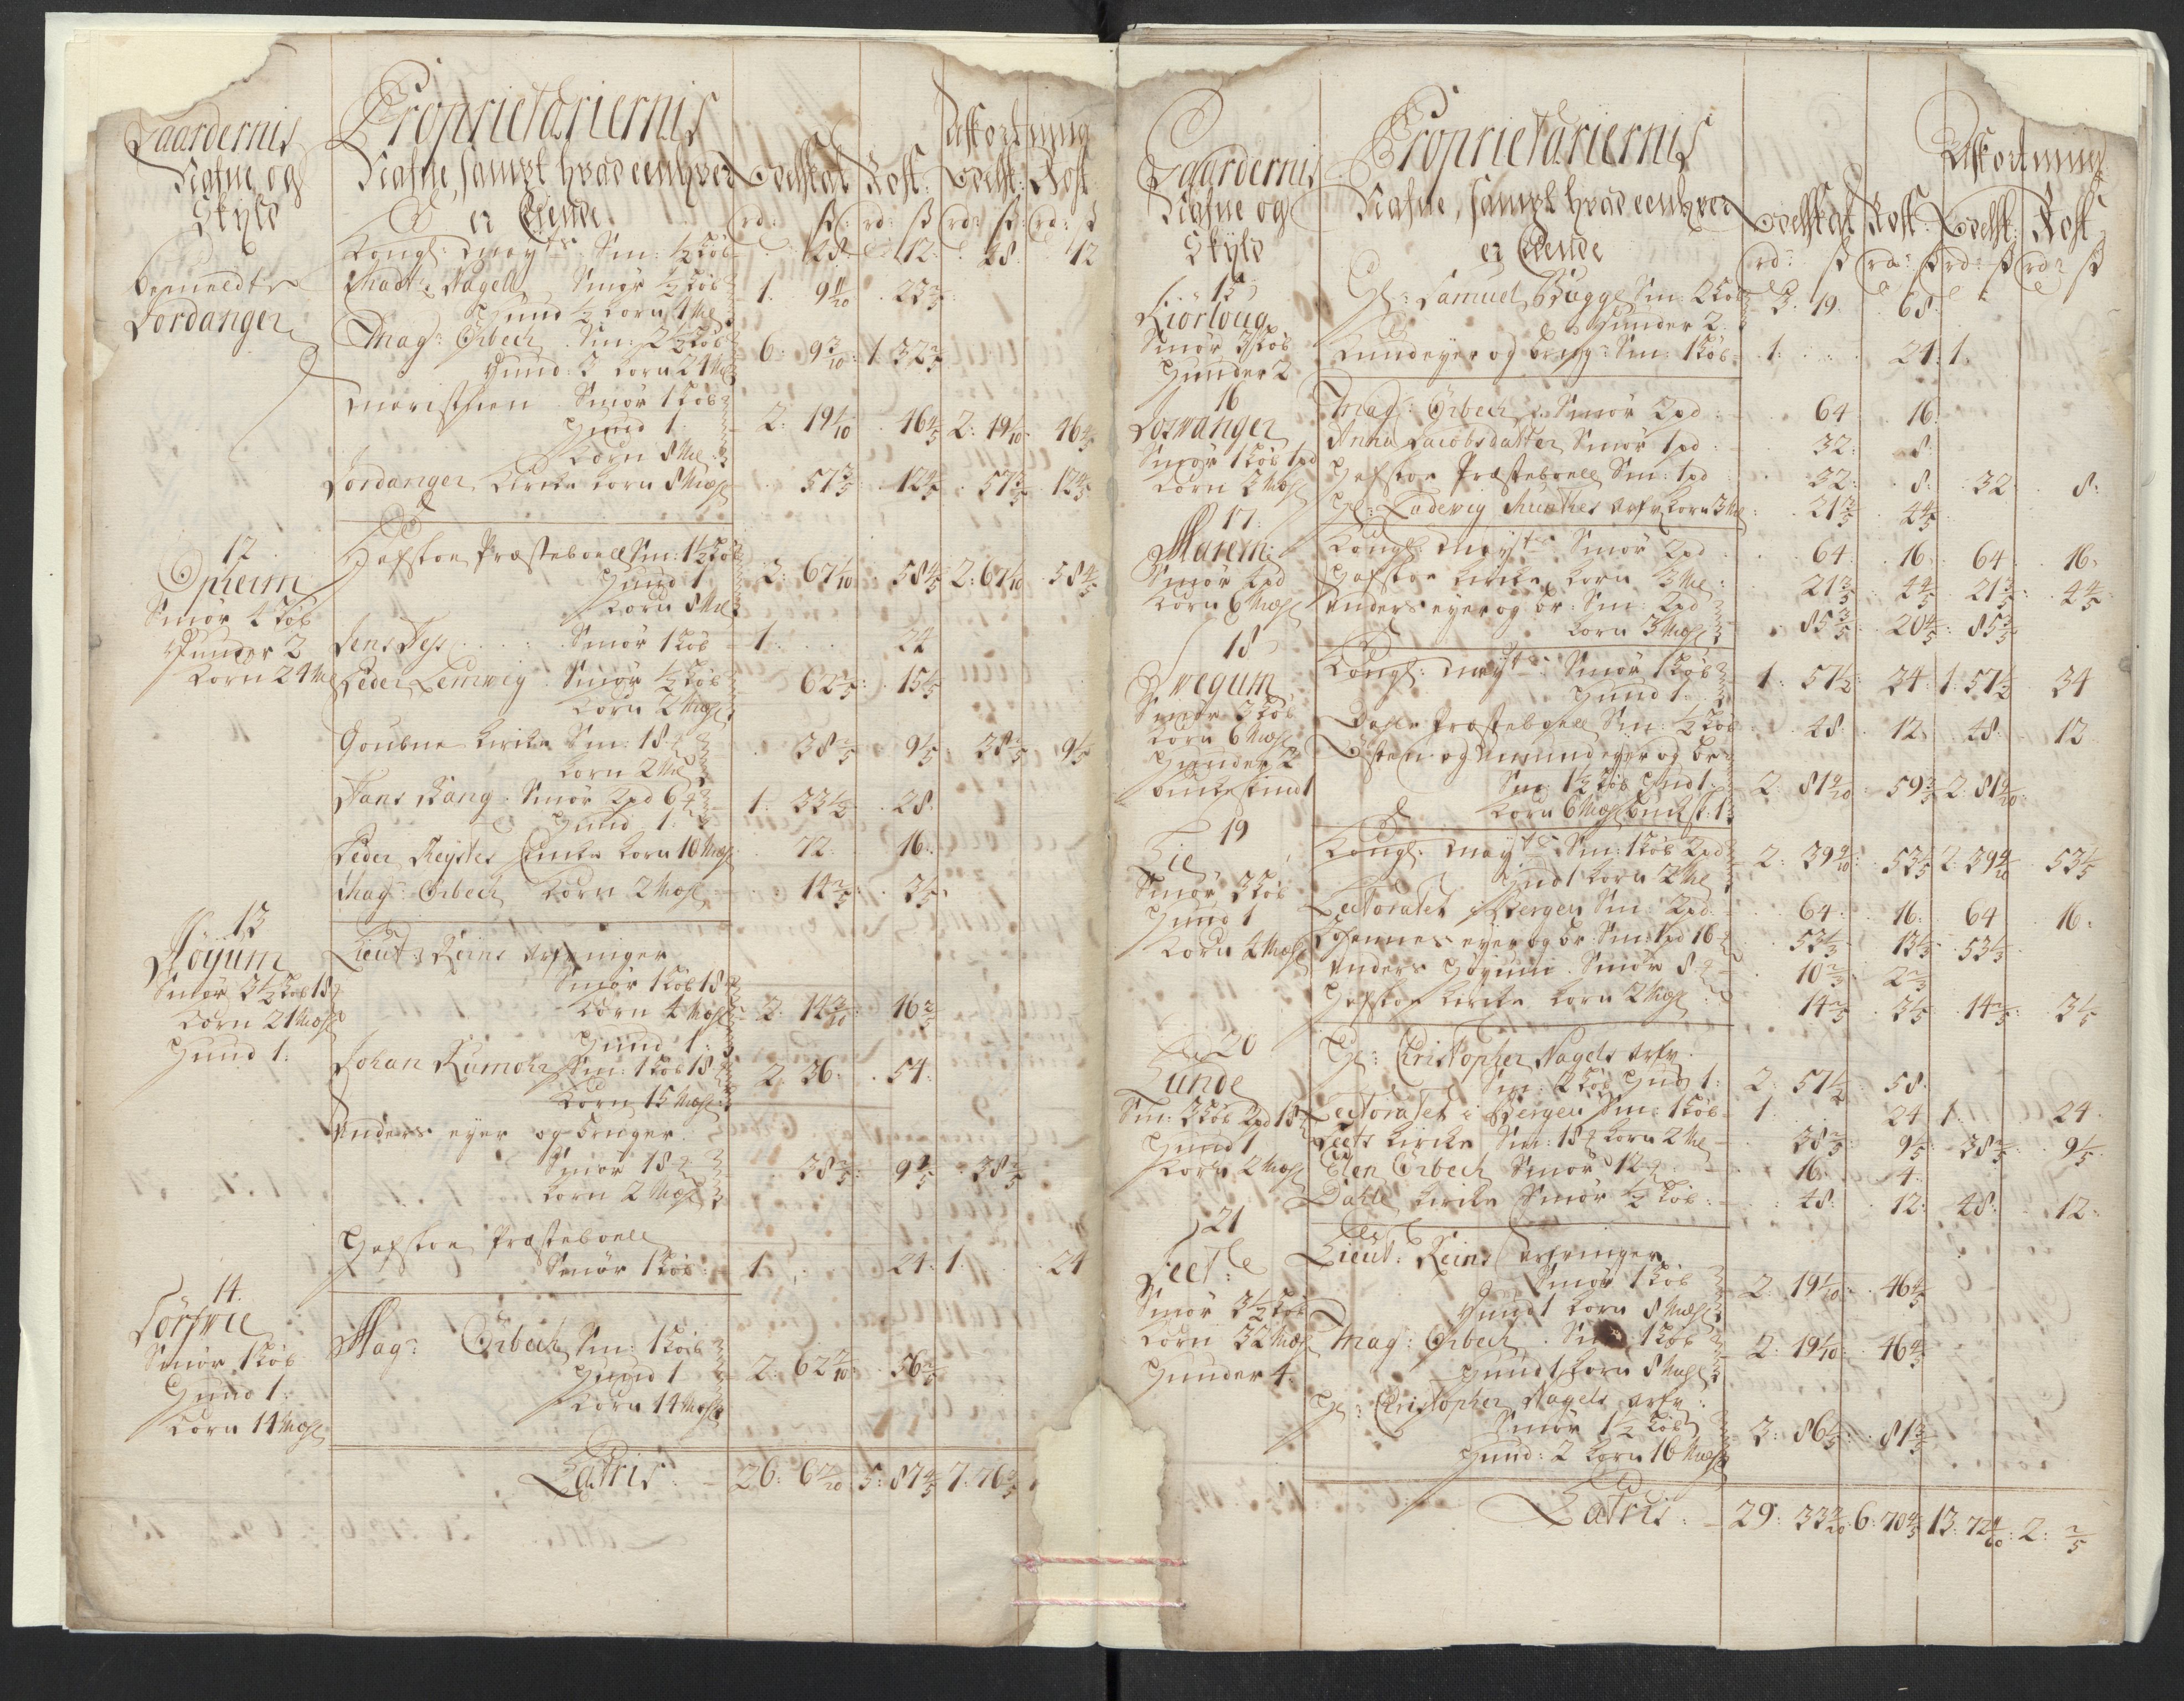 Gaardernis
Nafne og
Skÿld
Proprietariernis
Nafne, sampt hvad eenhver
er Eiende
Odelskat
Rost:
Afkortning
Odelsk:
Rost
rd: ß: rd: ß rd: ß: rd: ß
Bemeldte
Sordanger
Kongl: May:ts Sm: ½ Løb 48 12 48 12
Madt: Nagell Smør ½ Løb
Hund ½ Korn 1 Mæl 1. 9 23
Mag: Orbech Sm: 2½ Løb
Hund: 3 Korn 24 Mæl 6: 9 3/10 1: 32 2/5
Smør 1 Løb
Hund 1
Korn 8 Mæl 2: 19 1/10 46 4/5 2: 19 1/10 46 4/5
Sordanger Kircke Korn 8 Mæhl 57 3/5 12 4/5 57 3/5 12 4/5
12
Opheim
Smør 4 Løb
Hunder 2
Korn 24 Mæl
Hafsloe Præsteboell Sm: 1½ Løb
Hund 1
Korn 8 Mæl 2: 67 1/10 58 4/5 2: 67 1/10 58 4/5
Jens Smør 1 Løb 1 24
Peder Lemwig Smør ½ Løb
Korn 2 Mæhl 62 2/5 15 1/5
Goubne Kircke Sm: 18
Korn 2 Mæl 38 2/5 9 1/5 38 2/5 9 1/5
Hans Bang Smør 2 pd 6
Hund 1 1. 33 1/2 28
Peder Reysles Encke Korn 10 Mæhl 72 16
Mag: Orbech Korn 2 Mæhl 14 2/5 3 1/5
13
Höÿum
Smør 3½ Løb 18
Korn 21 Mæhl
Hund 1:
Lieut: Reins Arfvinger
Smør 1 Løb 18
Korn 4 Mæhl
Hund 1: 2. 14 3/10 46 2/5
Johan Rumohr Sm: 1 Løb 18
Korn 15 Mæhl 2. 36 54
Anders eyer og bruger
Smør 18
Korn 2 Mæhl 38 2/5 9 1/5 38 2/5
Hafsloe Præsteboell
Smør 1 Løb 1. 24 1. 24
14.
Sörswee
Smør 1 Løb
Hund 1:
Korn 14 Mæhl
Mag: Orbech Sm: 1 Løb
Hund 1
Korn 14 Mæhl 2: 62 3/10 56 2/5
Latris 26: 6 5: 87 4/5 7: 76
Gaardernis
Nafne og
Skÿld
Proprietariernis
Nafne, sampt hvad eenhver
er Eiende
Odelskat
Rost:
Afkortning
Odelsk:
Rost
rd: ß rd: ß rd: ß rd: ß
15
Kiörloug
Smør 3 Løb
Hunder 2
Hl: Samuel Bugge Sm: 2 Løb
Hunder 2 3. 19. 68
Knud eyer og brug: Sm: 1 Løb 1. 24: 1.
16
Lorwanger
Smør 1 Løb 1 pd
Korn 3 Mæhl
Mag: Orbech Smør 2 pd 64 16
Anna Jacobsdatter Smør 1 pd 32 8
Hafsloe Præsteboell Sm: 1 pd 32 8 32 8
Hl: Ladevig Munthes Arfv: Korn 3 Mæl 21 3/5 4 4/5
17
Marem:
Smør 4 pd
Korn 6 Mæhl
Kongl: May:ts Smør 2 pd 64 16 64 16
Hafsloe Kircke Korn 3 Mæl 21 3/5 4 4/5 21 3/5 4 4/5
Anders eyer og br: Sm: 2 pd
Korn 3 Mæhl 85 3/5 20 4/5 85 3/5
18
Swegum
Smør 3 Løb
Korn 6 Mæhl
Hunder 2
Kongl: May:ts Smør 1 Løb
Hund 1: 1: 51 1/2 34 1: 51 1/2 34
Dahle Præsteboell Sm: ½ Løb 48 12 48 12
Östen og Amund eyer og br:
Sm: 1½ Løb Hund 1
Korn 6 Mæhl 2: 81 9/10 59 3/5 2: 81 9/10
19
Lie
Smør 3 Løb
Hund 1
Korn 4 Mæhl
Kongl: May:ts Sm: 1 Løb 2 pd
Hund 1 Korn 2 Mæl 2: 39 9/10 53 1/5 2: 39 9/10 53 1/5
Lectoratet i Bergen Sm: 2 pd 64 16 64 16
Johannes eyer og br: Sm: 1 pd 16 53 1/3 13 1/3 53 1/3
Anders Höyum Smør 8 10 2/3 2 2/3
Hafsloe Kircke Korn 2 Mæhl 14 2/5 3 1/5 14 2/5 3 1/5
20
Lunde
Sm: 3 Løb 2 pd 18
Hund 1
Korn 2 Mæhl
Hl: Christopher Nagels Arfv:
Sm: 2 Løb Hund 1: 2: 51 1/2 58
Lectoratet i Bergen Sm: 1 Løb 1. 24 1. 24
Feets Kircke Sm: 18 Korn 2 Mæl 38 2/5 9 1/5 38 2/5 9 1/5
Elen Orbech Smør 12 16 4
Dahle Kircke Smør ½ Løb 48 12 48 12
21
Feet:
Smør 3½ Løb
Korn 32 Mæhl
Hunder 4
Lieut: Reins Arfvinger
Smør 1 Løb
Hund 1 Korn 8 Mæhl 2: 19 1/10 46 4/5
Mag: Orbech Sm: 1 Løb
Hund 1 Korn 8 Mæhl 2: 19 1/10 46 4/5
Hl: Christopher Nagels Arfv:
Smør 1½ Løb
Hund: 2 Korn 16 Mæhl 3: 86 1/5 81 3/5
Latris: 29: 33 6: 70 4/5 13: 72 2: 2/5